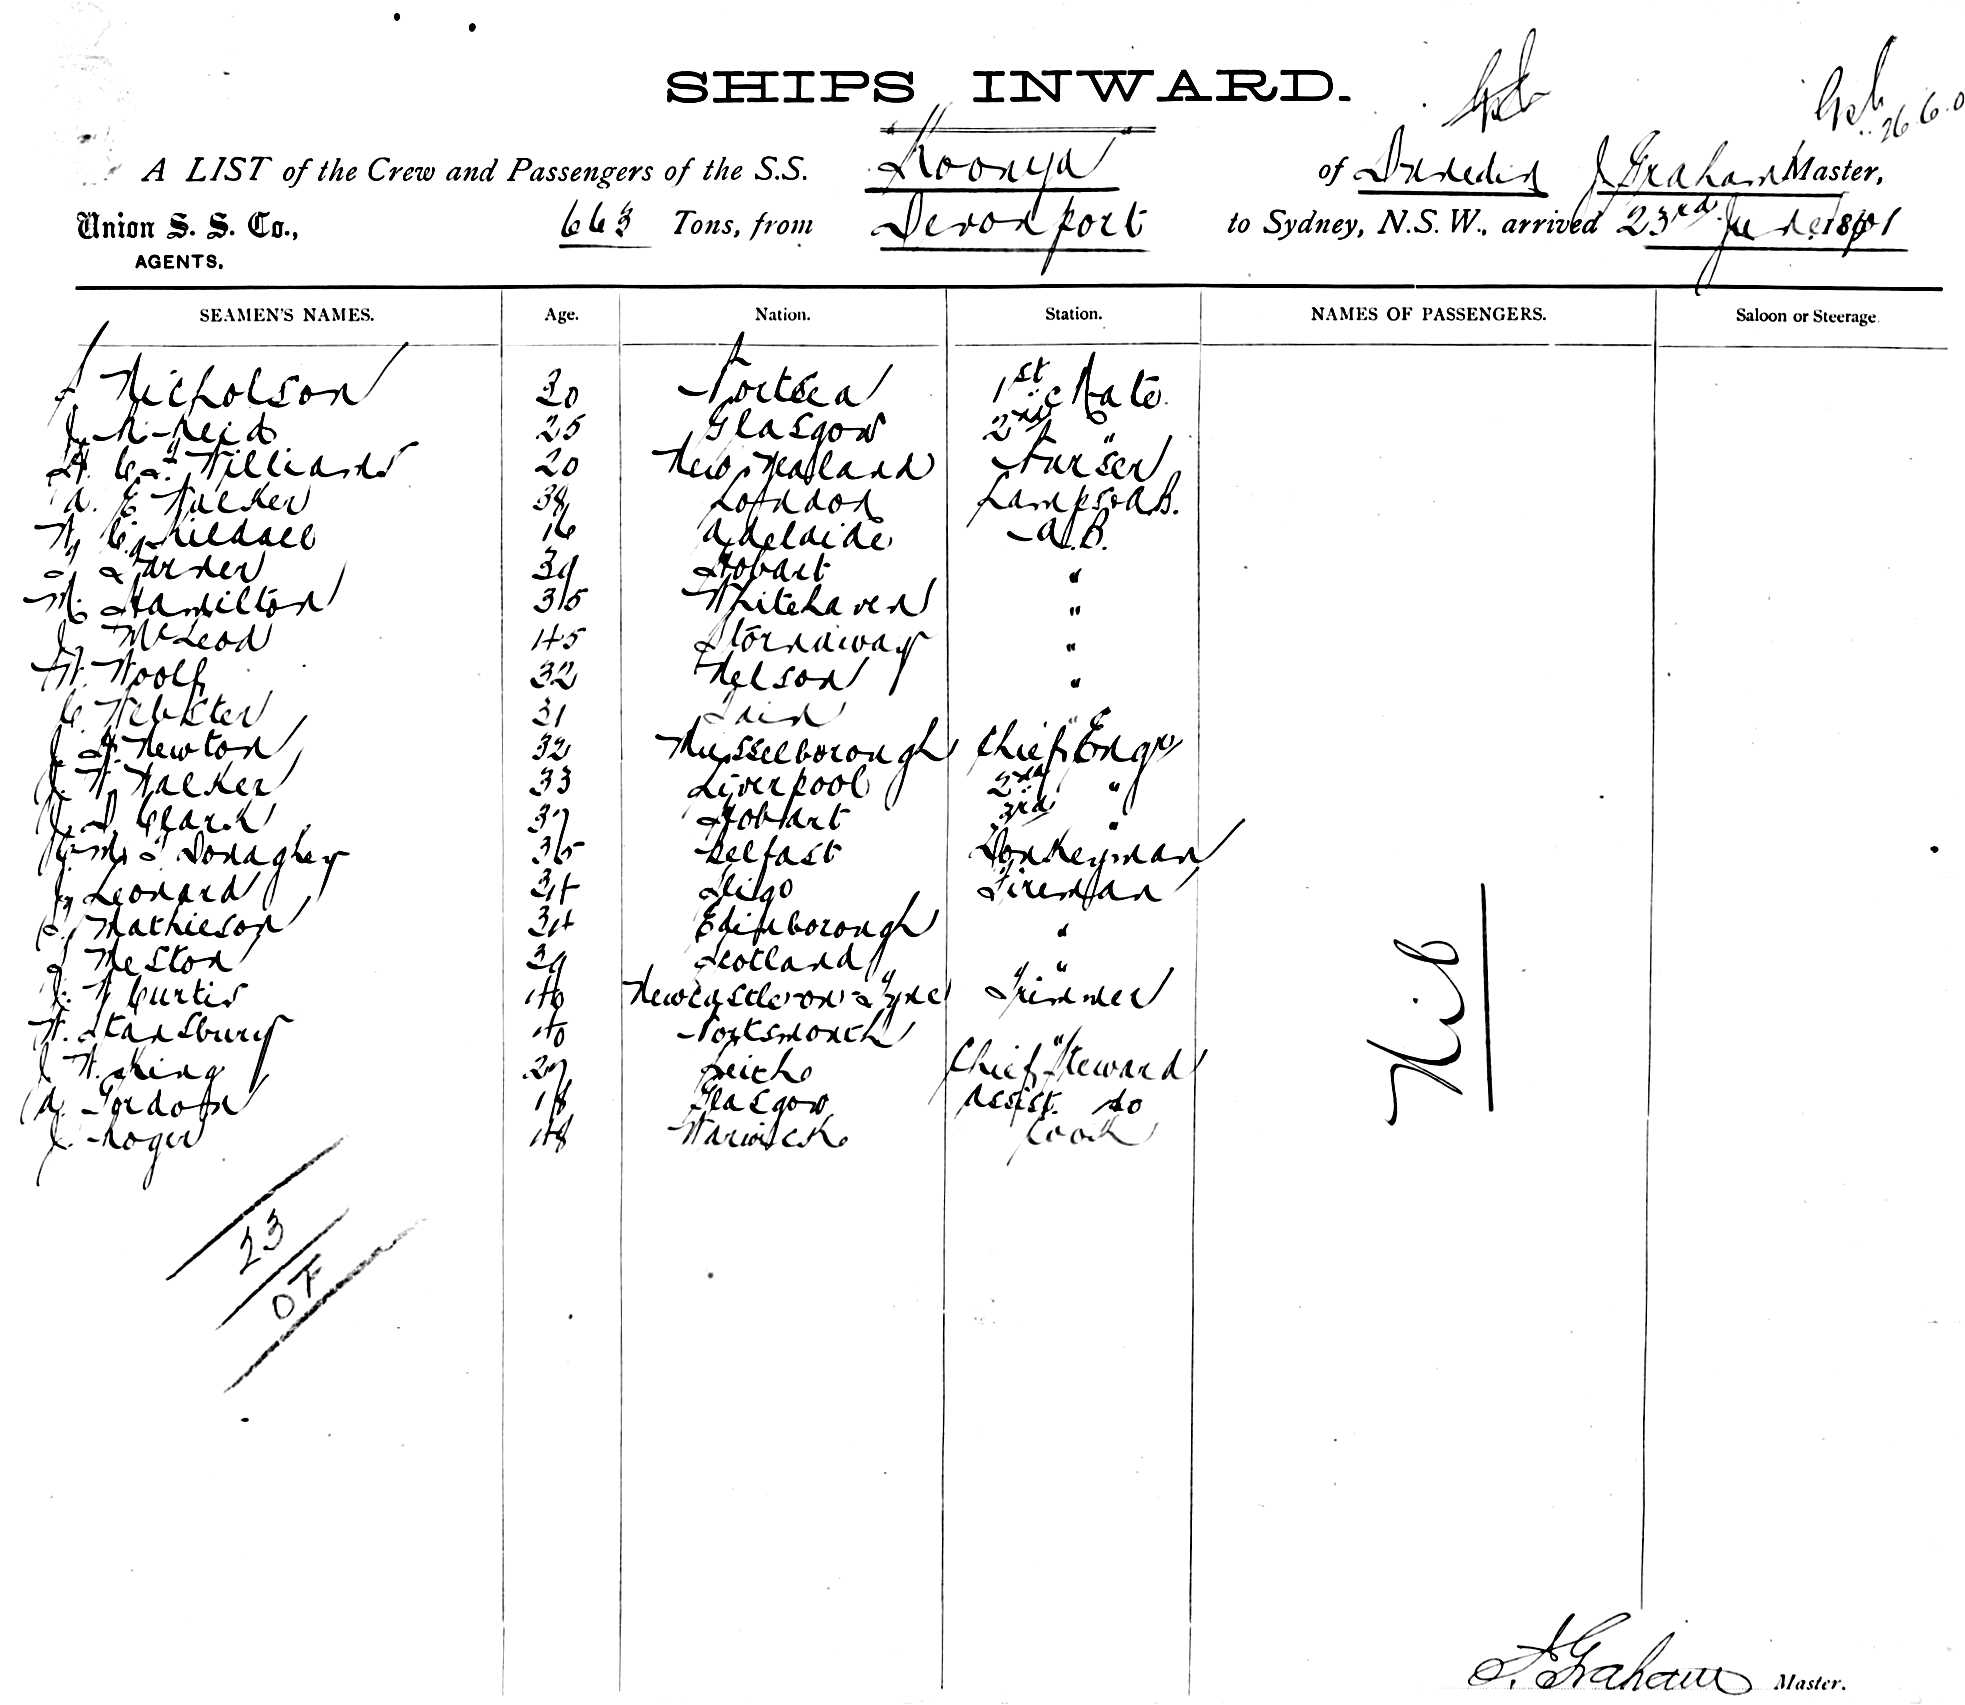 SHIPS INWARD.
A LIST of the Crew and Passengers of the S.S. Koonya of Dunedin J Graham Master,
Union S. S. Co., 663 Tons, from Devonport to Sydney, N.S.W., arrived 23rd June 1901
AGENTS.
SEAMEN'S NAMES. Age. Nation. Station. NAMES OF PASSENGERS. Saloon or Steerage
Nicholson 30 Portsea 1st Mate
J. Reid 25 Glasgow 2nd "
H. C. Williams 20 New Zealand Purser
A. E Walker 38 London Lamps & A.B.
Kildael 16 Adelaide A.B.
Garner 39 Hobart "
M. Hamilton 35 Whitehaven "
J McLeod 45 Stornaway "
W. Woolf 32 Nelson "
C Webster 31 "
J H. Newton 32 Musselborough Chief Engr
J. W Walker 33 Liverpool 2nd "
J. D Clark 37 Hobart 3rd "
Donaghey 35 Belfast Donkeyman
J Leonard 34 Sligo Fireman
Mathieson 34 Edinborough "
Meston 39 Scotland "
J. W Curtis 40 Newcastle-on-Tyne Trimmer
W. Stansbury 40 Portsmouth "
J W. King 27 Leith Chief Steward
A. Gordon 18 Glasgow Assist. do
J. Roger 48 Warwick Cook
Nil
23
OF
J. Graham Master.